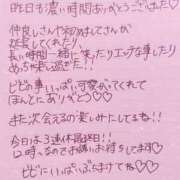 昨日も濃い時間ありがとうございました♡
仲良しさんや初めましてさんが
延長してくれたり、
長い時間一緒に笑ったりエッチな事したり
めっちゃ楽しい過ぎた!!
ビビの事いっぱい可愛がってくれて
ほんとにありがとう♡♡
また次会えるの楽しみにしてるね!!
今日は3連休最終日!!
12時〜なのでお誘いお待ちしてます♡
ビビにいっぱいぶちまけてね♡♡